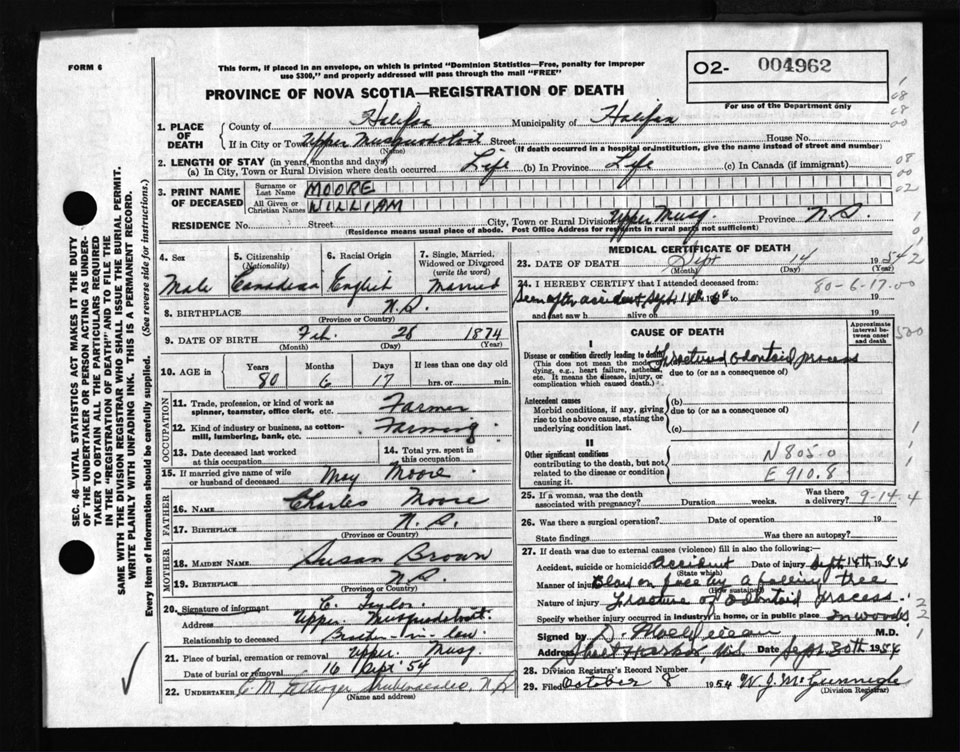 FORM 6
This form, if placed in an envelope, on which is printed "Dominion Statistics—Free, penalty for improper
use $300," and properly addressed will pass through the mail "FREE"
O2- 004962
For use of the Department only
PROVINCE OF NOVA SCOTIA—REGISTRATION OF DEATH
1. PLACE OF DEATH
County of Halifax Municipality of Halifax
If in City or Town Upper Musquodoboit Street House No.
(Name) (If death occurred in a hospital or institution, give the name instead of street and number)
2. LENGTH OF STAY (in years, months and days)
(a) In City, Town or Rural Division where death occurred Life (b) In Province Life (c) In Canada (if immigrant)
3. PRINT NAME OF DECEASED
Surname or Last Name MOORE
All Given or Christian Names WILLIAM
RESIDENCE No. Street City, Town or Rural Division Upper Musq. Province N.S.
(Residence means usual place of abode. Post Office Address for residents in rural parts not sufficient)
4. Sex
Male
5. Citizenship
(Nationality)
Canadian
6. Racial Origin
English
7. Single, Married, Widowed or Divorced
(write the word)
Married
8. BIRTHPLACE N.S.
(Province or Country)
9. DATE OF BIRTH Feb. 28 1874
(Month) (Day) (Year)
10. AGE in
Years Months Days If less than one day old
80 6 17 hrs. or min.
OCCUPATION
11. Trade, profession, or kind of work as spinner, teamster, office clerk, etc. Farmer
12. Kind of industry or business, as cotton-mill, lumbering, bank, etc. Farming
13. Date deceased last worked at this occupation
14. Total yrs. spent in this occupation
15. If married give name of wife or husband of deceased May Moore
FATHER
16. NAME Charles Moore
17. BIRTHPLACE N.S.
(Province or Country)
MOTHER
18. MAIDEN NAME Susan Brown
19. BIRTHPLACE N.S.
(Province or Country)
20. Signature of informant C. Taylor
Address Upper Musquodoboit
Relationship to deceased Brother-in-law
21. Place of burial, cremation or removal Upper Musq.
Date of burial or removal 16 '54
22. UNDERTAKER C. M. Shubenacadie, N.S.
(Name and address)
MEDICAL CERTIFICATE OF DEATH
23. DATE OF DEATH Sept 14 195
(Month) (Day) (Year)
24. I HEREBY CERTIFY that I attended deceased from: 80-6-17.00
Seen after accident, Sept 14th 19
and last saw h alive on 19
CAUSE OF DEATH
Approximate interval between onset and death
I
Disease or condition directly leading to death
(This does not mean the mode of dying, e.g., heart failure, asthenia, etc. It means the disease, injury, or complication which caused death.)
Fractured odontoid process
due to (or as a consequence of)
Antecedent causes
Morbid conditions, if any, giving rise to the above cause, stating the underlying condition last.
(b)
due to (or as a consequence of)
(c)
II
Other significant conditions
contributing to the death, but not related to the disease or condition causing it.
N 805.0
E 910.8
25. If a woman, was the death associated with pregnancy? Duration weeks. Was there a delivery? 9-14-4
26. Was there a surgical operation? Date of operation 19
State findings Was there an autopsy?
27. If death was due to external causes (violence) fill in also the following:—
Accident, suicide or homicide? Accident Date of injury Sept 14th 1954
(State which)
Manner of injury Blow on face by a falling tree
(How sustained)
Nature of injury Fracture of odontoid process.
Specify whether injury occurred in industry, in home, or in public place In woods
Signed by M.D.
Address Sheet Harbor, N.S. Date Sept 30th 1954
28. Division Registrar's Record Number
29. Filed October 8 1954 W. J. McGunnigle
(Division Registrar)
SEC. 46—VITAL STATISTICS ACT MAKES IT THE DUTY
OF THE UNDERTAKER OR PERSON ACTING AS UNDER-
TAKER TO OBTAIN ALL THE PARTICULARS REQUIRED
IN THE "REGISTRATION OF DEATH" AND TO FILE THE
SAME WITH THE DIVISION REGISTRAR WHO SHALL ISSUE THE BURIAL PERMIT.
WRITE PLAINLY WITH UNFADING INK. THIS IS A PERMANENT RECORD.
Every item of information should be carefully supplied. (See reverse side for instructions.)